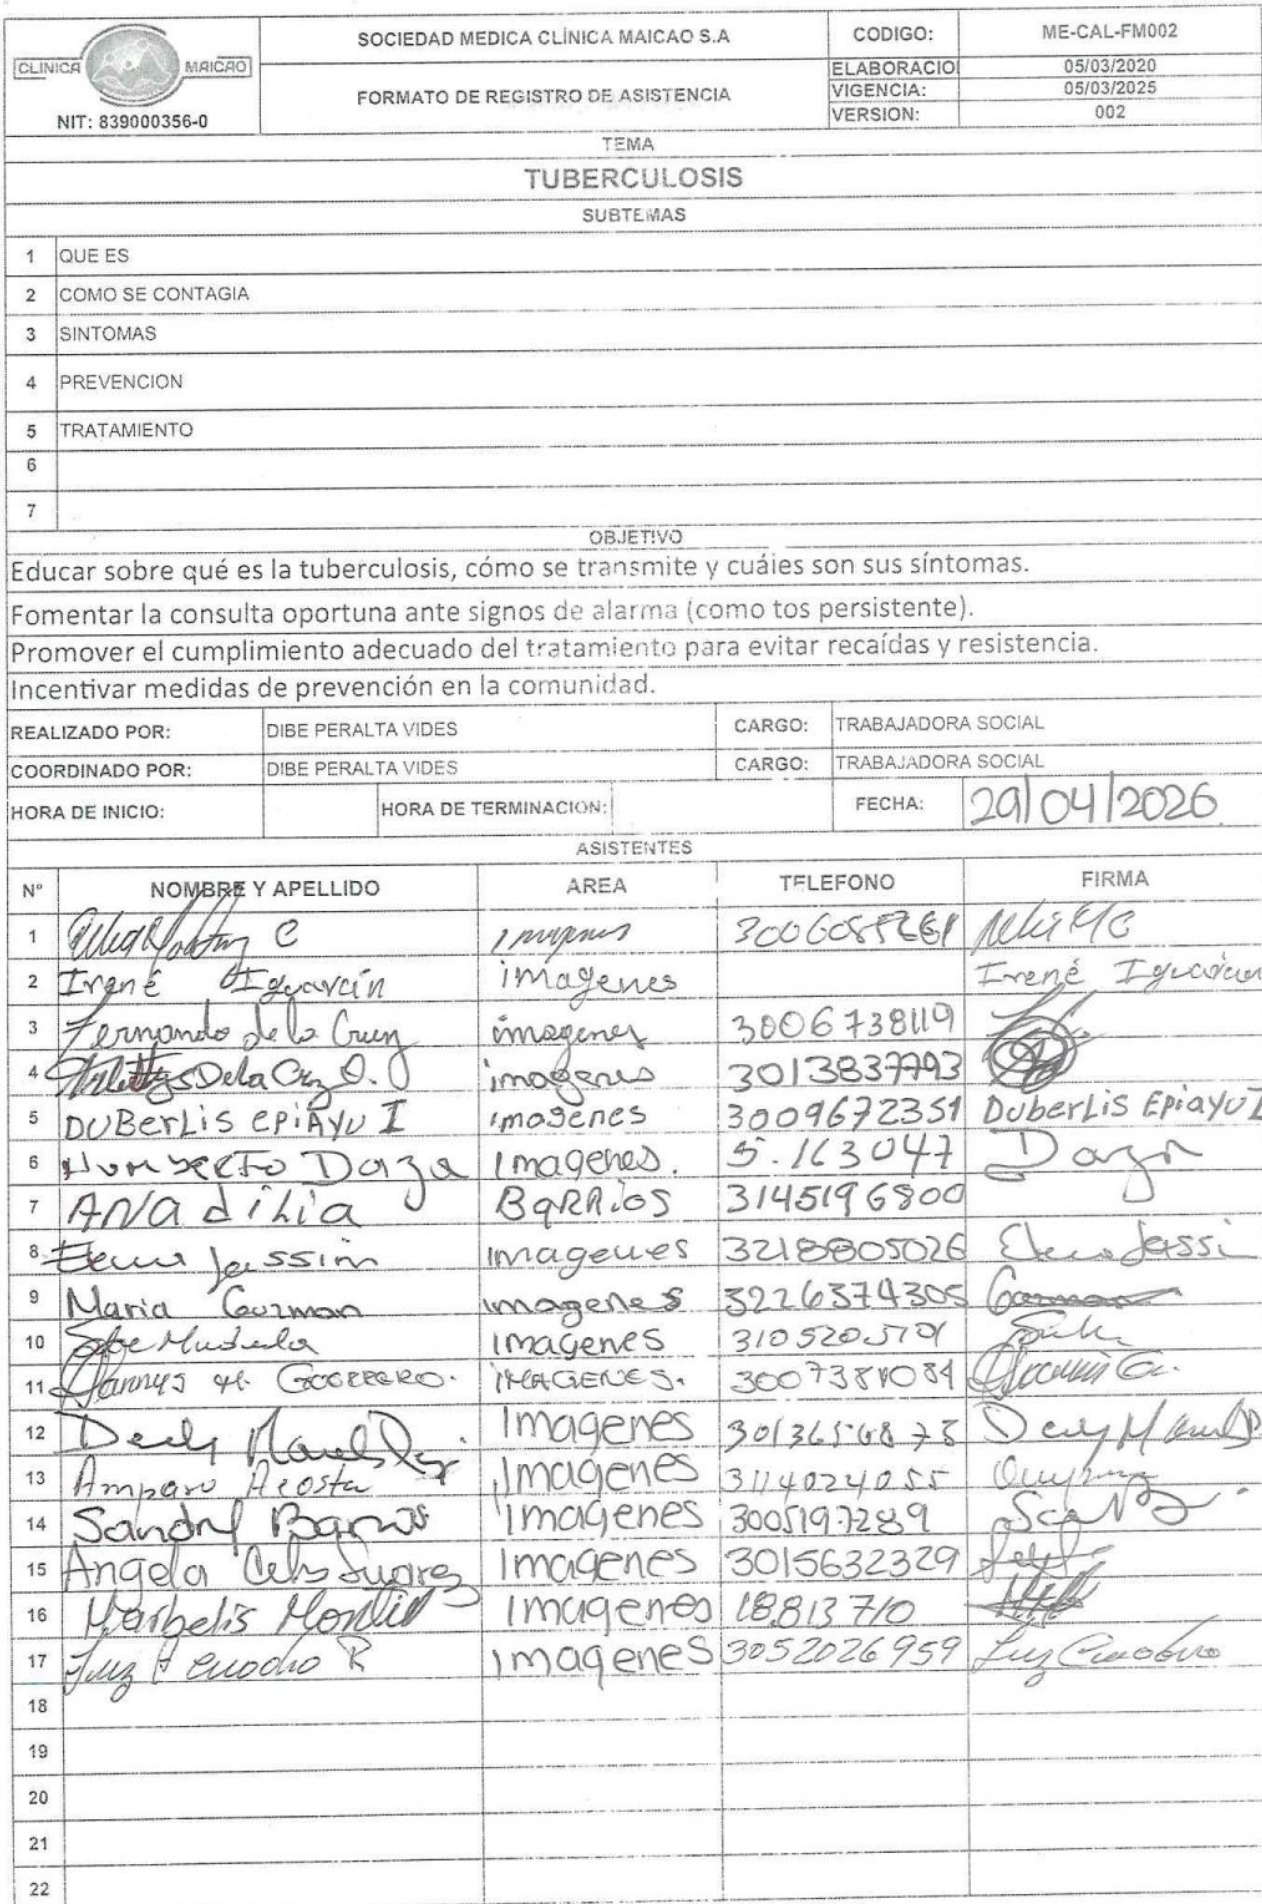 CLINICA MAICAO
NIT: 839000356-0
SOCIEDAD MEDICA CLÍNICA MAICAO S.A
FORMATO DE REGISTRO DE ASISTENCIA
CODIGO: ME-CAL-FM002
ELABORACIO 05/03/2020
VIGENCIA: 05/03/2025
VERSION: 002
TEMA
TUBERCULOSIS
SUBTEMAS
1 QUE ES
2 COMO SE CONTAGIA
3 SINTOMAS
4 PREVENCION
5 TRATAMIENTO
6
7
OBJETIVO
Educar sobre qué es la tuberculosis, cómo se transmite y cuáles son sus síntomas.
Fomentar la consulta oportuna ante signos de alarma (como tos persistente).
Promover el cumplimiento adecuado del tratamiento para evitar recaídas y resistencia.
Incentivar medidas de prevención en la comunidad.
REALIZADO POR: DIBE PERALTA VIDES CARGO: TRABAJADORA SOCIAL
COORDINADO POR: DIBE PERALTA VIDES CARGO: TRABAJADORA SOCIAL
HORA DE INICIO: HORA DE TERMINACION: FECHA: 29/04/2026
ASISTENTES
N° NOMBRE Y APELLIDO AREA TELEFONO FIRMA
1 C imagenes
2 Irené Iguarán imagenes Irené Iguarán
3 Fernando de la Cruz imagenes 3006738119
4 De la Cruz O. imagenes 3013837793
5 DUBerLis EPiAYU I imagenes 3009672351 DuberLis EPiayU I
6 Humberto Daza Imagenes. 5.163047 Daza
7 ANA diLia BaRRios 3145196800
8 Jassim imagenes 3218805026 Jassi
9 Maria Guzman imagenes 3226374305 Guzman
10 imagenes
11 M. GUERRERO. IMAGENES.
12 Imagenes
13 Amparo Acosta Imagenes 3114024055
14 Sandra Barros Imagenes 3005197289
15 Angela Suarez Imagenes 3015632329
16 Marbelis Montiel Imagenes 18.813710
17 Luz R Imagenes 3052026959 Luz
18
19
20
21
22